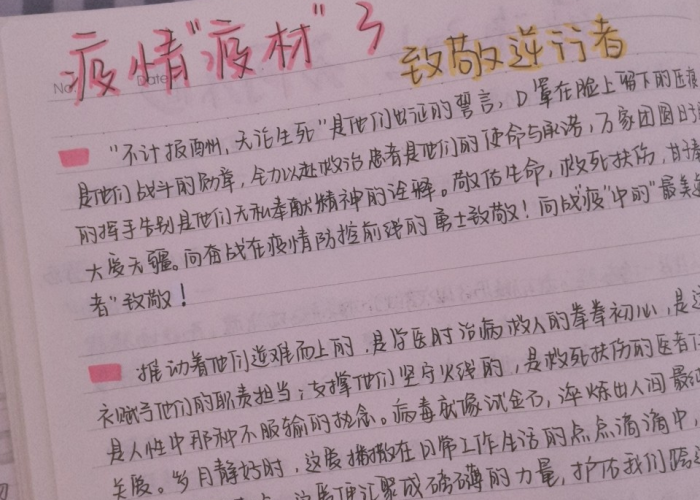 疫情"疫材"3
致敬逆行者
No.
Date
"不计报酬，无论生死"是他们出征的誓言，口罩在脸上留下的压痕
是他们战斗的勋章，全力以赴救治患者是他们的使命与承诺，万家团圆时
的挥手告别是他们无私奉献精神的诠释。敬佑生命，救死扶伤，甘
大爱无疆。向奋战在疫情防控前线的勇士致敬！向战"疫"中的"最美
者"致敬！
推动着他们逆难而上的，是学医时治病救人的拳拳初心，是
衣赋予他们的职责担当；支撑他们坚守火线的，是救死扶伤的医者
是人性中那种不服输的执念。病毒就像试金石，淬炼出人间最
关爱。岁月静好时，这爱播撒在日常工作生活的点点滴滴中，
这爱便汇聚成磅礴的力量，护佑我们